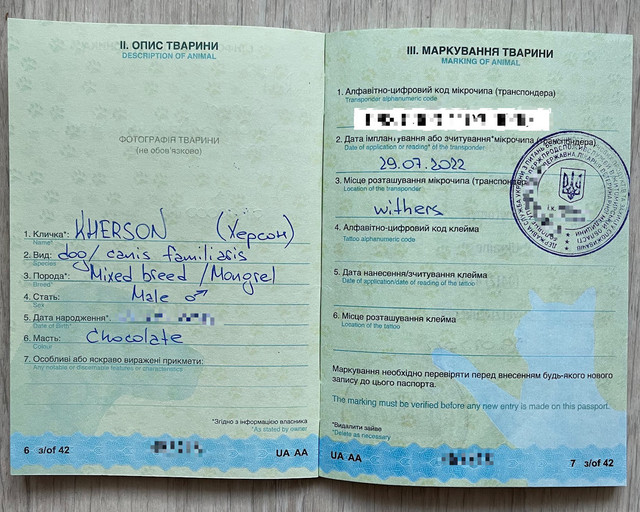 II. ОПИС ТВАРИНИ
DESCRIPTION OF ANIMAL
ФОТОГРАФІЯ ТВАРИНИ
(не обов'язково)
1. Кличка*: KHERSON (Херсон)
Name*
2. Вид: dog/canis familiaris
Species
3. Порода*: Mixed breed/Mongrel
Breed*
4. Стать: Male ♂
Sex
5. Дата народження*:
Date of Birth*
6. Масть: Chocolate
Colour
7. Особливі або яскраво виражені прикмети:
Any notable or discernable features or characteristics
*Згідно з інформацією власника
*As stated by owner
6 з/of 42
UA AA
III. МАРКУВАННЯ ТВАРИНИ
MARKING OF ANIMAL
1. Алфавітно-цифровий код мікрочипа (транспондера)
Transponder alphanumeric code
2. Дата імплантування або зчитування*мікрочипа
Date of application or reading* of the transponder
29.07.2022
3. Місце розташування мікрочипа
Location of the transponder
withers
4. Алфавітно-цифровий код клейма
Tattoo alphanumeric code
5. Дата нанесення/зчитування клейма
Date of application/date of reading of the tattoo
6. Місце розташування клейма
Location of the tattoo
Маркування необхідно перевіряти перед внесенням будь-якого нового
запису до цього паспорта.
The marking must be verified before any new entry is made on this passport.
*Видалити зайве
*Delete as necessary
UA AA
7 з/of 42